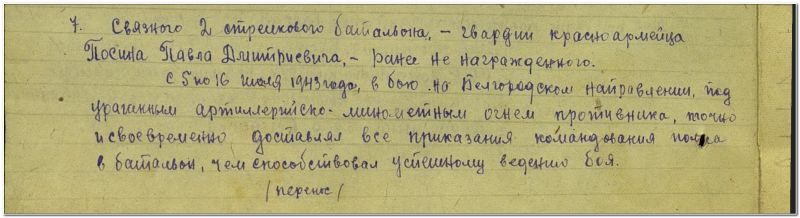 7. Связного 2 стрелкового батальона, – гвардии красноармейца
Посина Павла Дмитриевича, – ранее не награжденного.
с 5 по 16 июля 1943 года, в бою на Белгородском направлении, под
ураганным артиллерийско-минометным огнем противника, точно
и своевременно доставлял все приказания командования полка
в батальон, чем способствовал успешному ведению боя.
/перенос/